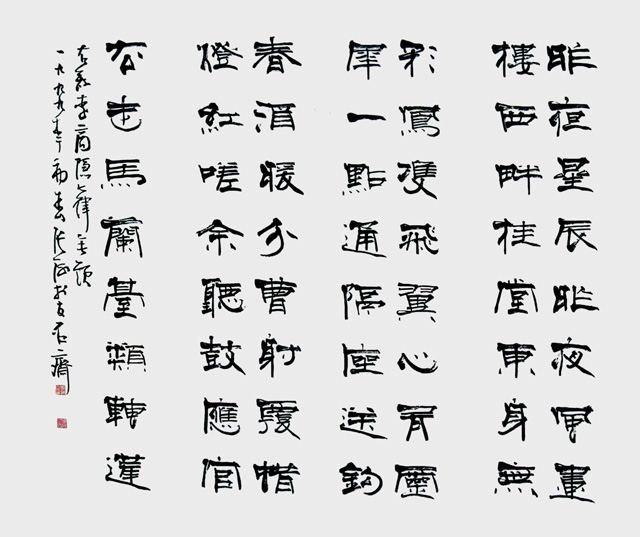 昨夜星辰昨夜風畫
樓西畔桂堂東身無
彩鳳雙飛翼心有靈
犀一點通隔座送鈎
春酒暖分曹射覆蜡
燈紅嗟余聽鼓應官
去走馬蘭臺類轉蓬
李商隱七律無題
一九九九年初春張海於石齋